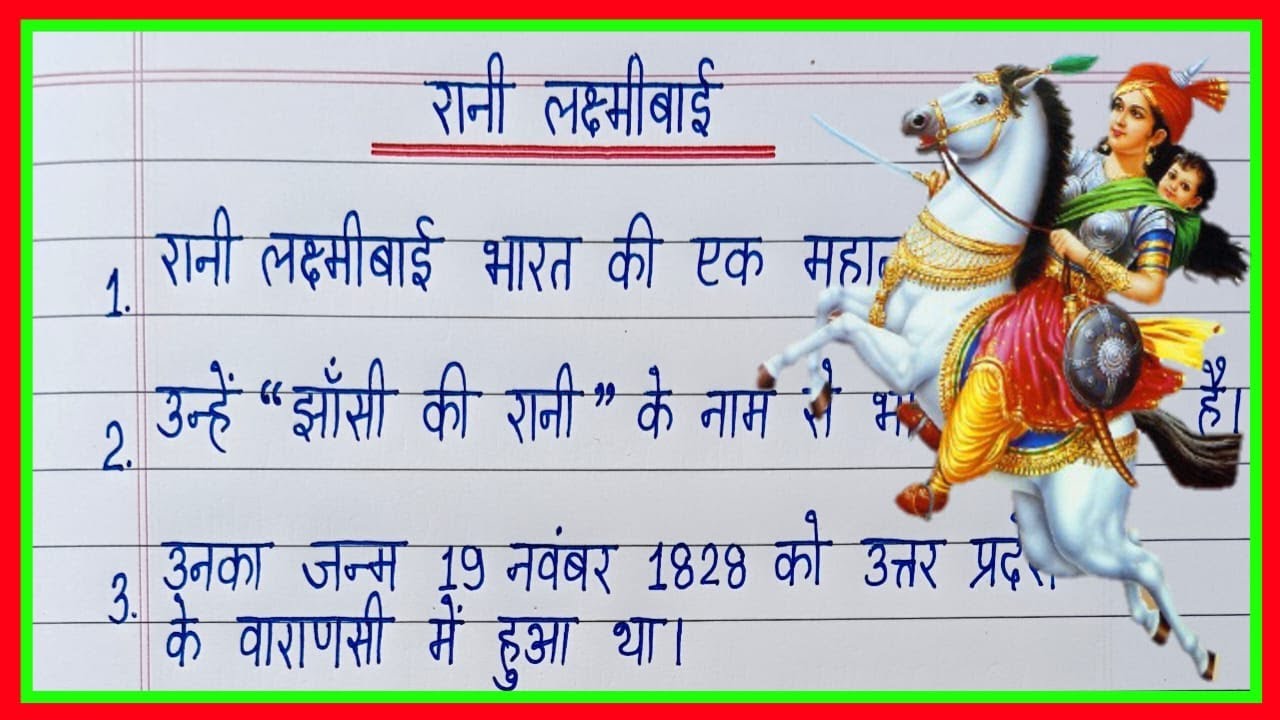 रानी लक्ष्मीबाई
1. रानी लक्ष्मीबाई भारत की एक
2. उन्हें “झाँसी की रानी” के नाम से है।
3. उनका जन्म 19 नवंबर 1828 को उत्तर प्रदेश
के वाराणसी में हुआ था।